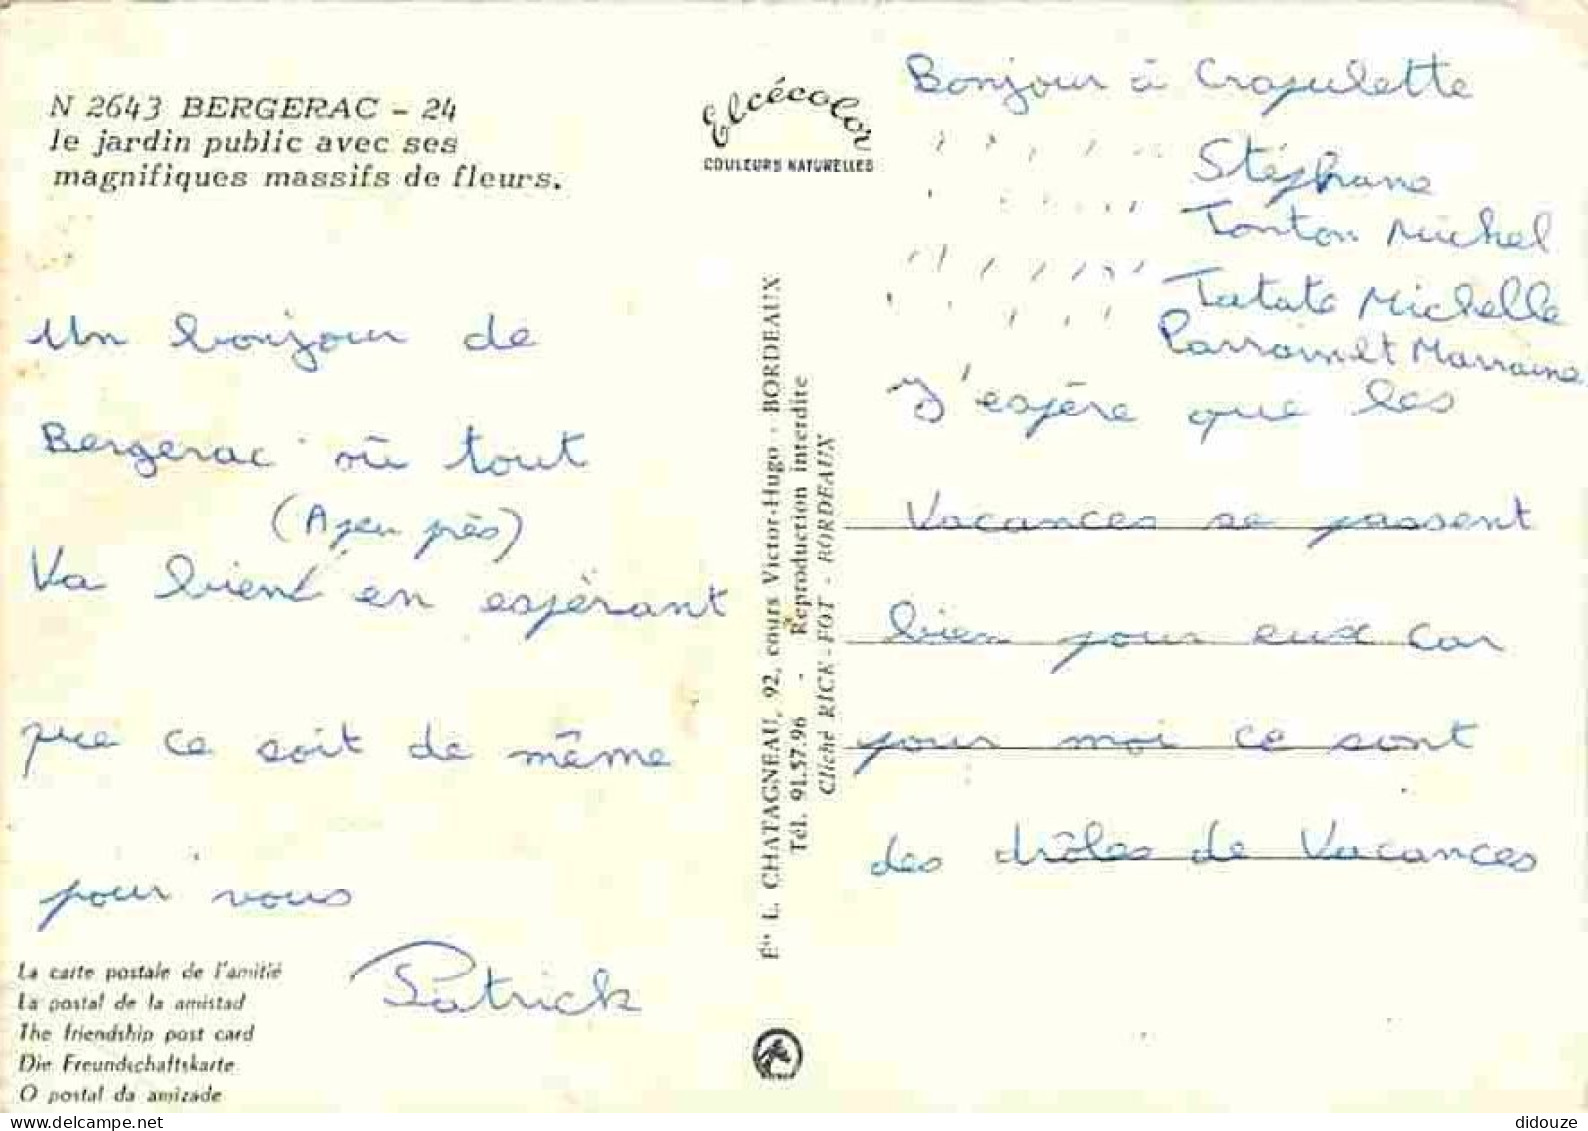 N 2643 BERGERAC - 24
le jardin public avec ses
magnifiques massifs de fleurs.
Un bonjour de
Bergerac où tout
(A peu près)
Va bien en espérant
que ce soit de même
pour vous
Patrick
La carte postale de l'amitié
La postal de la amistad
The friendship post card
Die Freundschaftskarte
O postal da amizade
Elcécolor
COULEURS NATURELLES
Éts L. CHATAGNEAU, 92, cours Victor-Hugo - BORDEAUX
Tél. 91.57.96 - Reproduction interdite
Cliché RICK-FOT - BORDEAUX
Bonjour à Crapulette
Stéphane
Tonton Michel
Tatate Michelle
Parrain et Marraine
J'espère que les
Vacances se passent
bien pour eux car
pour moi ce sont
des drôles de Vacances
didouze